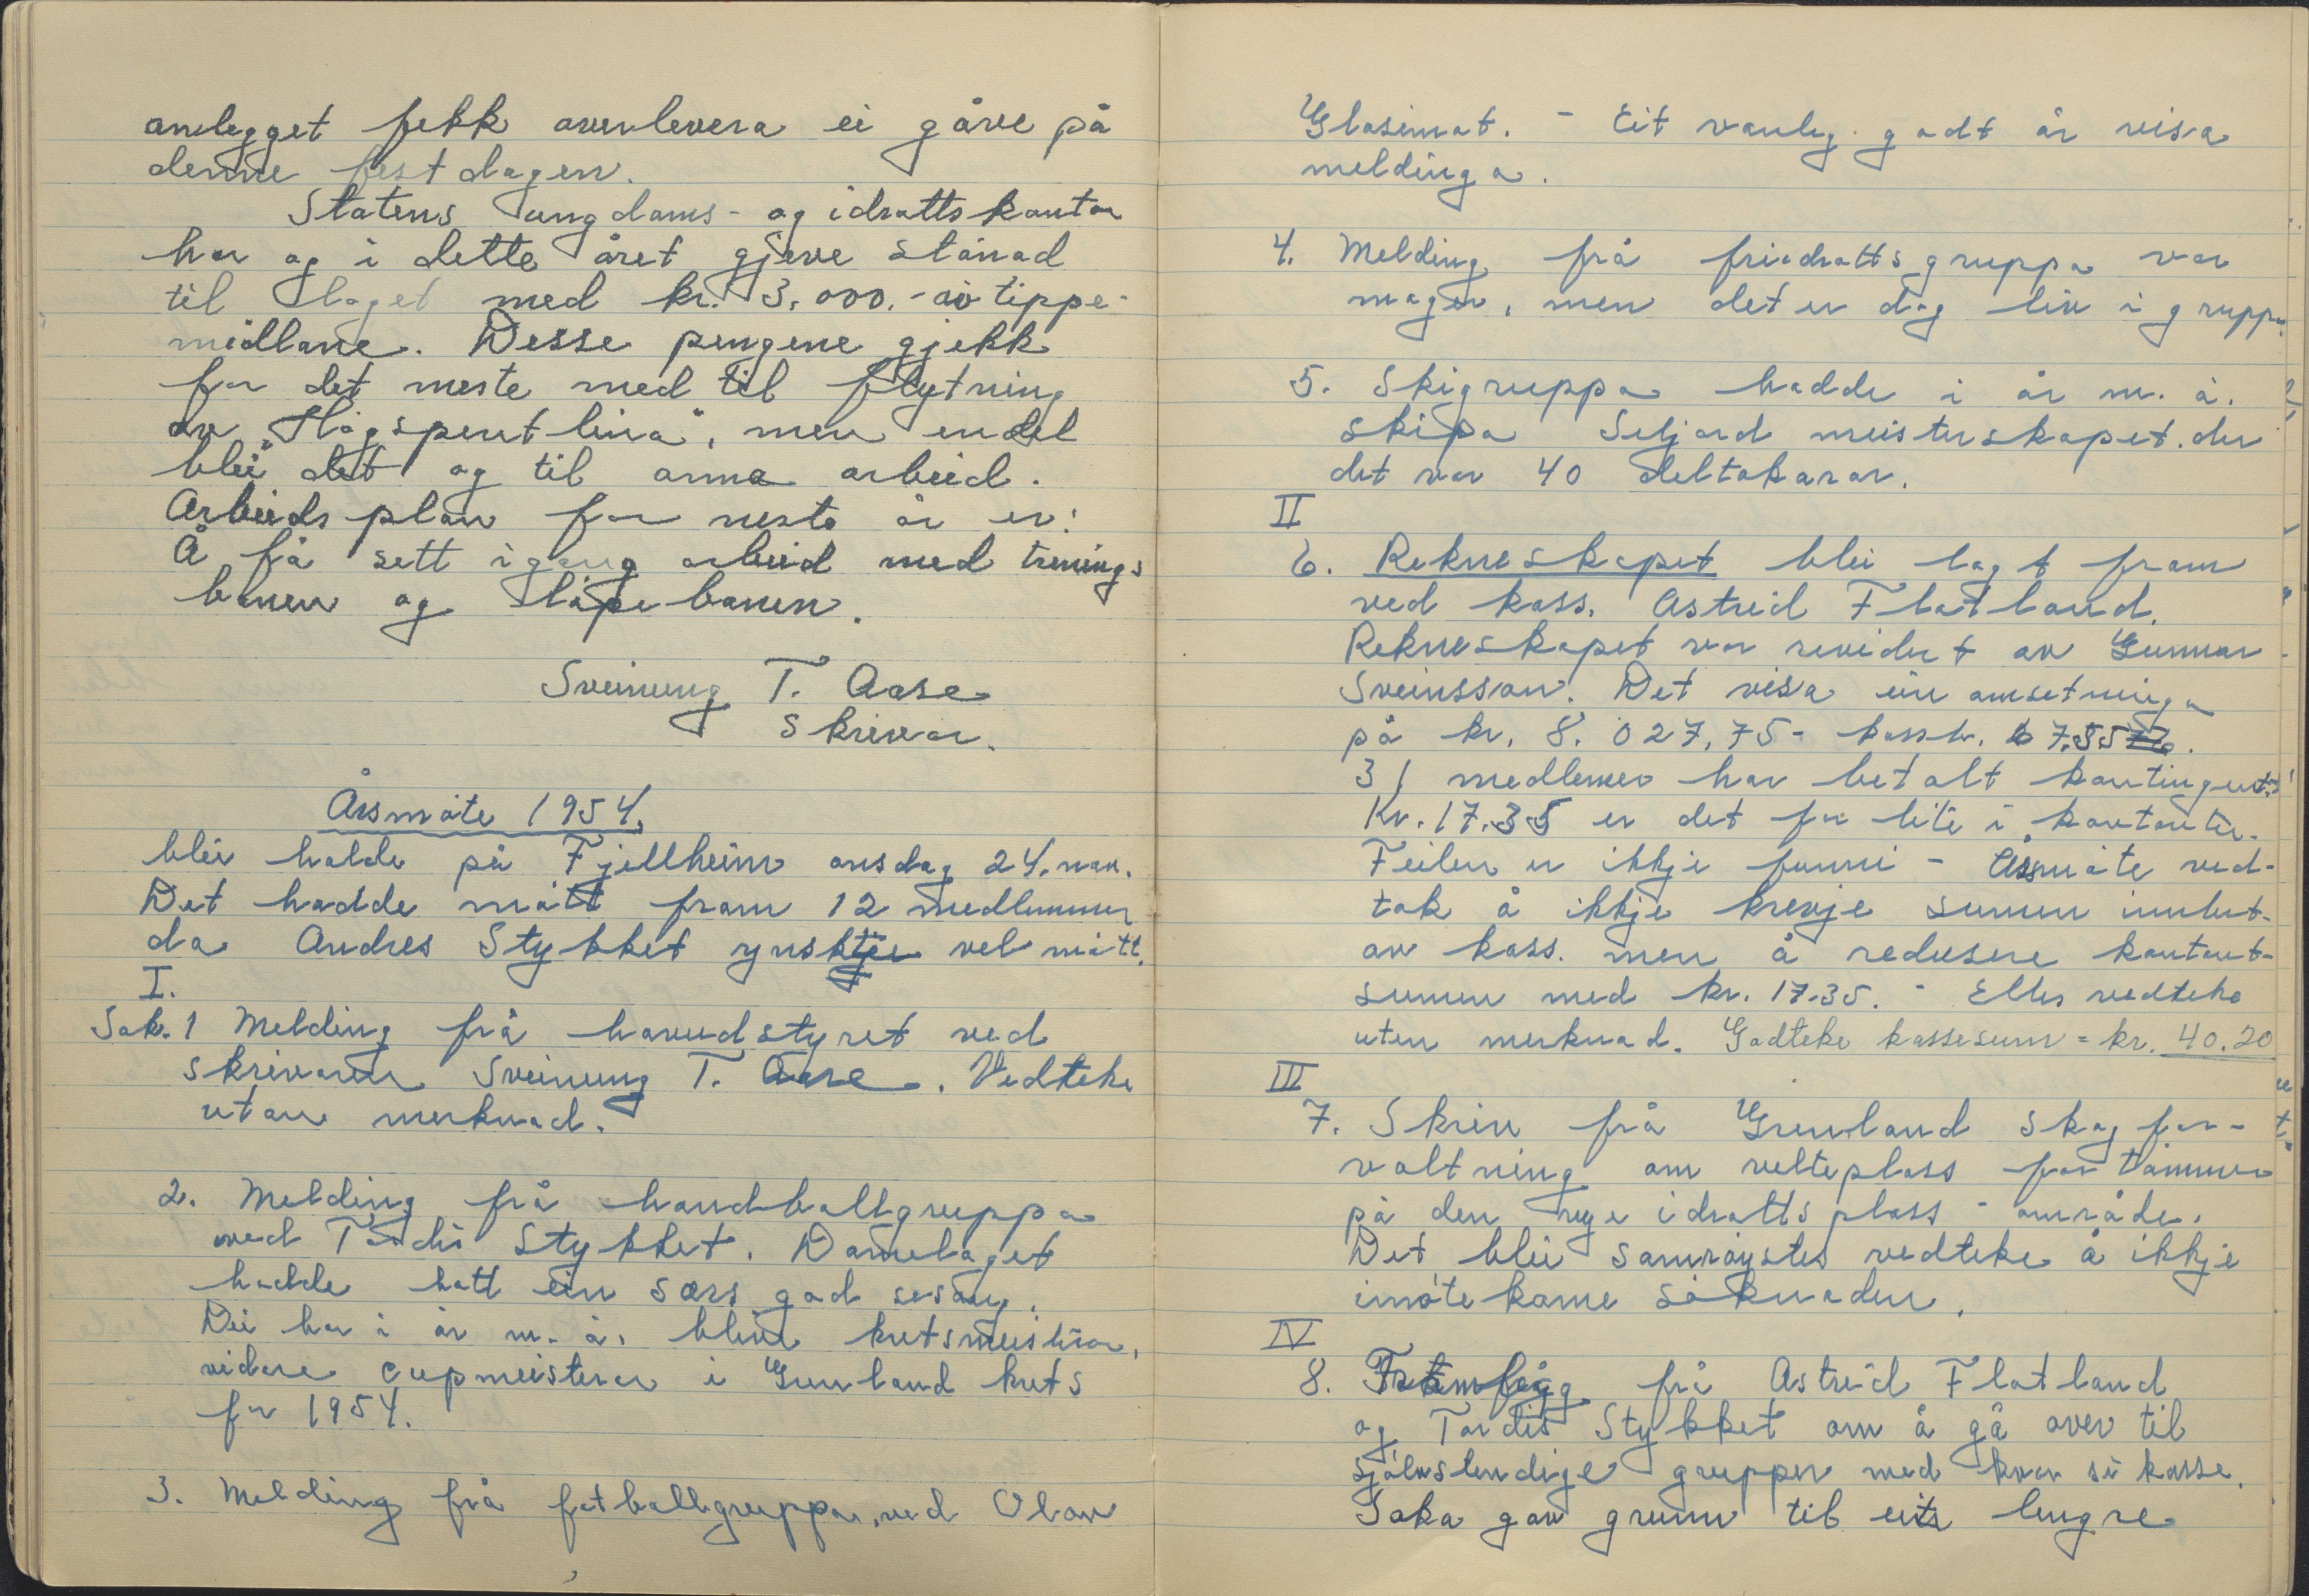 anlegget fekk overlevera ei gåve på
denne festdagen.
Statens ungdoms- og idrottskontor
har og i dette året gjeve stönad
til laget med kr. 3.000.- av tippe-
midlane. Desse pengene gjekk
for det meste med til flytning
av "Högspentlina", men endel
blei det og til anna arbeid.
Arbeidsplan for neste år er:
Å få sett igang arbeid med trenings
banen og löpebanen.
Sveinung T. Aase
Skrivar.
Årsmöte 1954.
blei halde på Fjellheim onsdag 24. nov.
Det hadde mött fram 12 medlemmer
da Andres Stykket ynskje vel mött.
I.
Sak. 1 Melding frå hovudstyret ved
skrivaren Sveinung T. Aase. Vedteke
utan merknad.
2. Melding frå handballgruppa
ved Tordis Stykket. Damelaget
hadde hatt ein sers god sesong.
Dei har i år m. a. blive kretsmeistrar,
vidare cupmeistrar i Grenland krets
for 1954.
3. Melding frå fotballgruppa, ved Olav
Glosimot. - Eit vanleg godt år visa
meldinga.
4. Melding frå friidrottsgruppa var
mager, men det er dog liv i gruppa.
5. Skigruppa hadde i år m. a.
skipa Seljord meisterskapet. der
det var 40 deltakarar.
II
6. Rekneskapet blei lagt fram
ved kass. Astrid Flatland.
Rekneskapet var revidert av Gunnar
Sveinsson. Det visa ein omsetninga
på kr. 8.027,75 - kassb. 67.55
31 medlemer har betalt kontingent.
Kr. 17.35 er det for lite i kontanter.
Feilen er ikkje funni - Årsmöte ved-
tok å ikkje krevje summen innbet-
av kass. men å redusere kontant-
summen med kr. 17.35. - Elles vedteke
uten merknad. Godteke kassesum = kr. 40.20
III
7. Skriv frå Grenland skogfor-
valtning om velteplass for tömmer
på den nye idrottsplass - område.
Det blei samröystes vedteke å ikkje
imötekome söknaden.
IV
8. Framlegg frå Astrid Flatland
og Tordis Stykket om å gå over til
sjölvstendige grupper med kvar si kasse.
Saka gav grunn til eit lengre